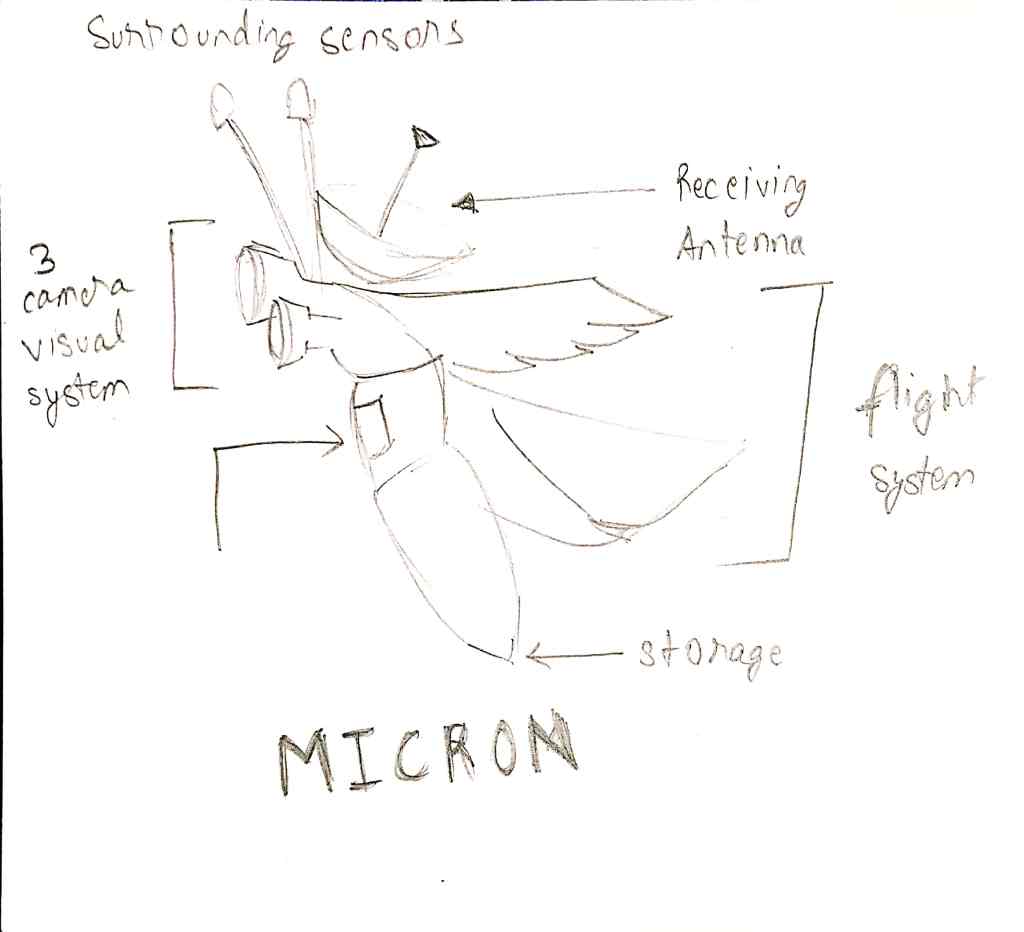 Surrounding sensors
Receiving
Antenna
3
camera
visual
system
flight
system
storage
MICRON